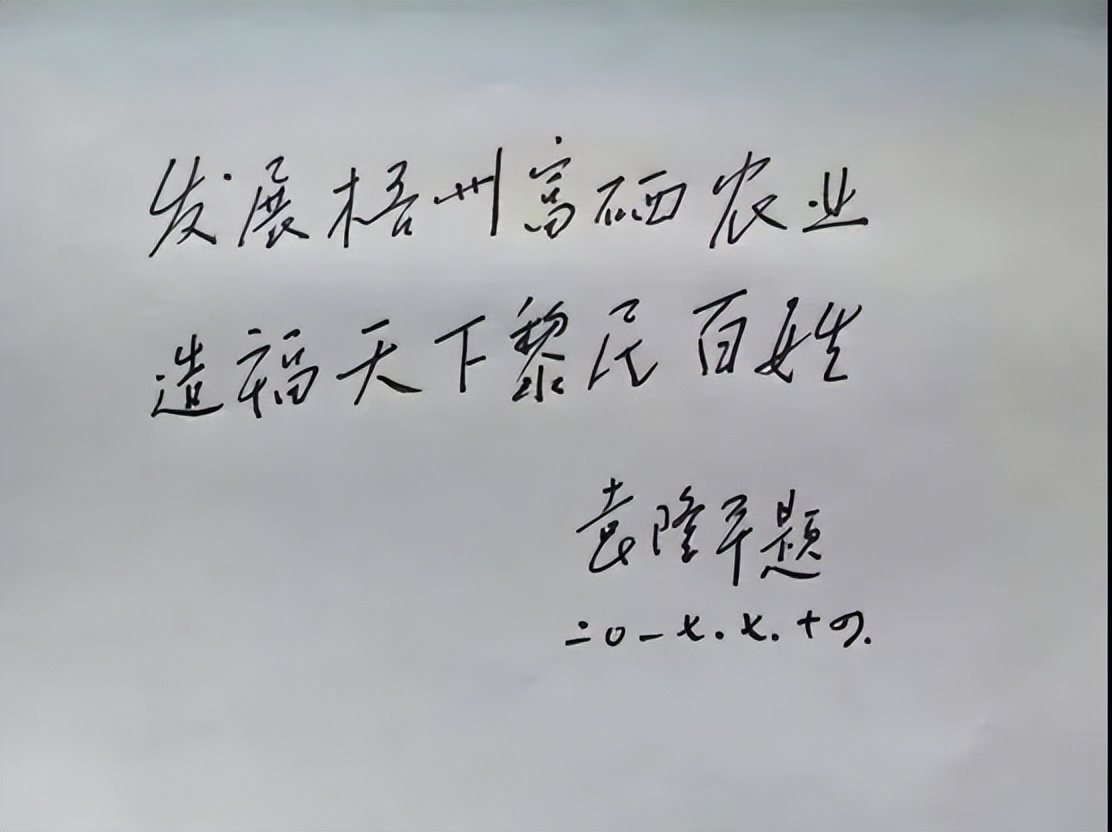 发展梧州富硒农业
造福天下黎民百姓
袁隆平题
二〇一七.七.十四.